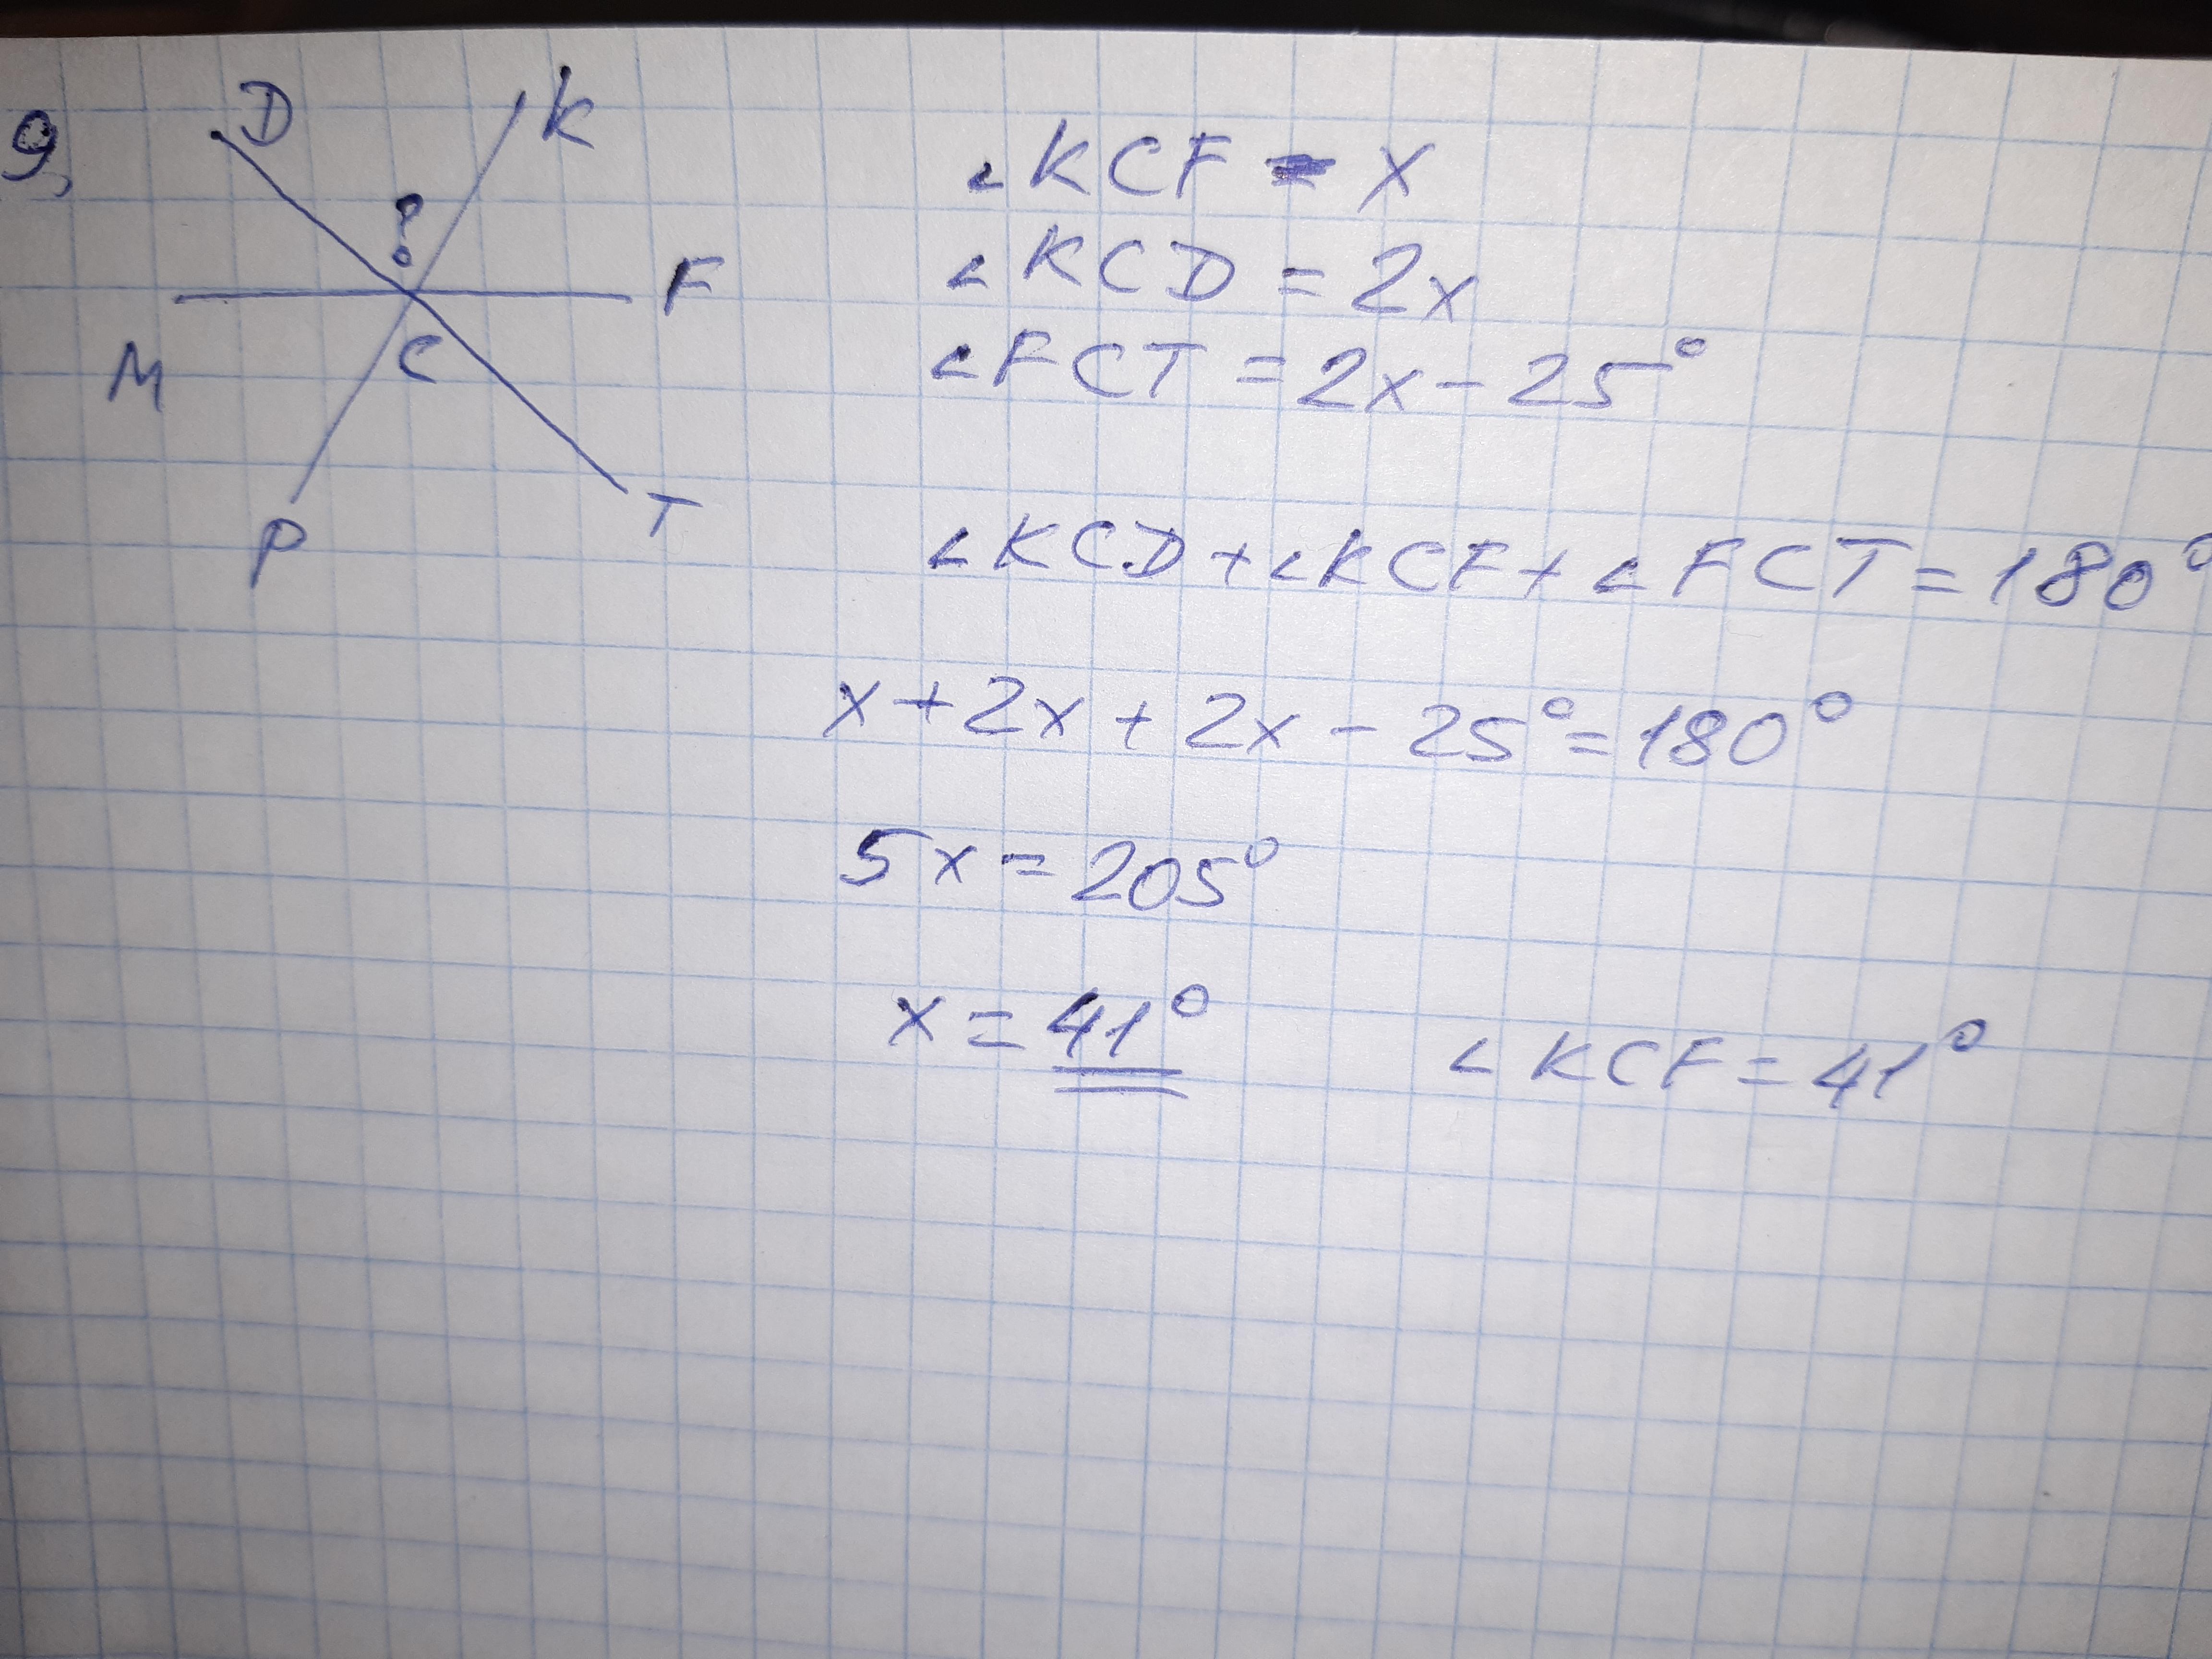 9,
D
K
?
M
F
C
P
T
∠KCF = x
∠KCD = 2x
∠FCT = 2x - 25°
∠KCD + ∠KCF + ∠FCT = 180°
x + 2x + 2x - 25° = 180°
5x = 205°
x = 41°
∠KCF = 41°